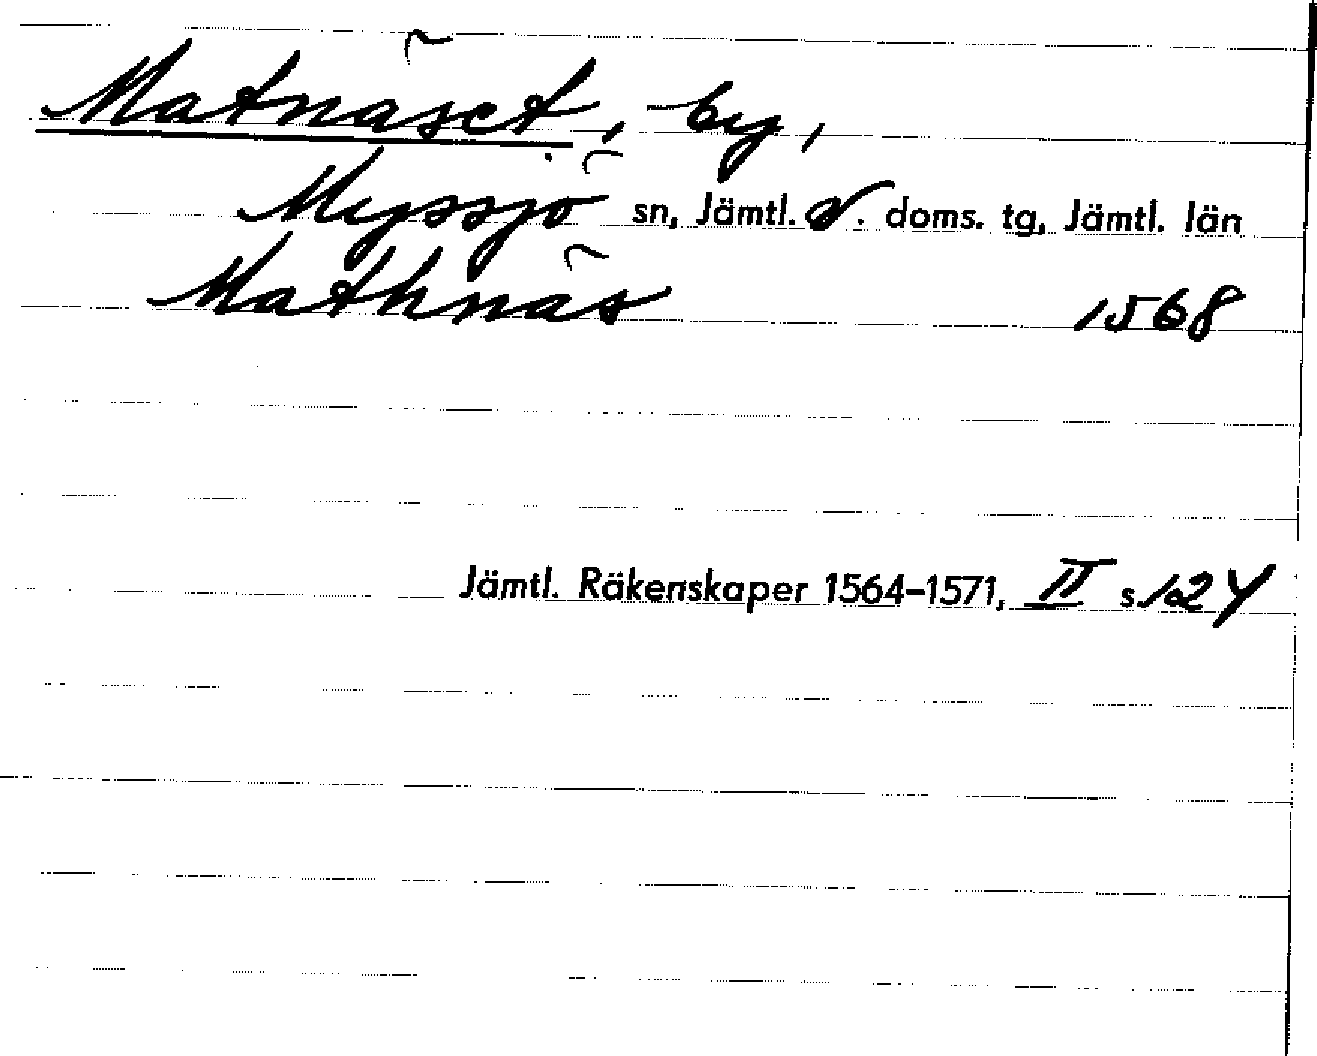 Matnäset, by,
Myssjö sn, Jämtl. v. doms. tg, Jämtl. län
Mathnäs 1568
Jämtl. Räkenskaper 1564-1571, II s. 124